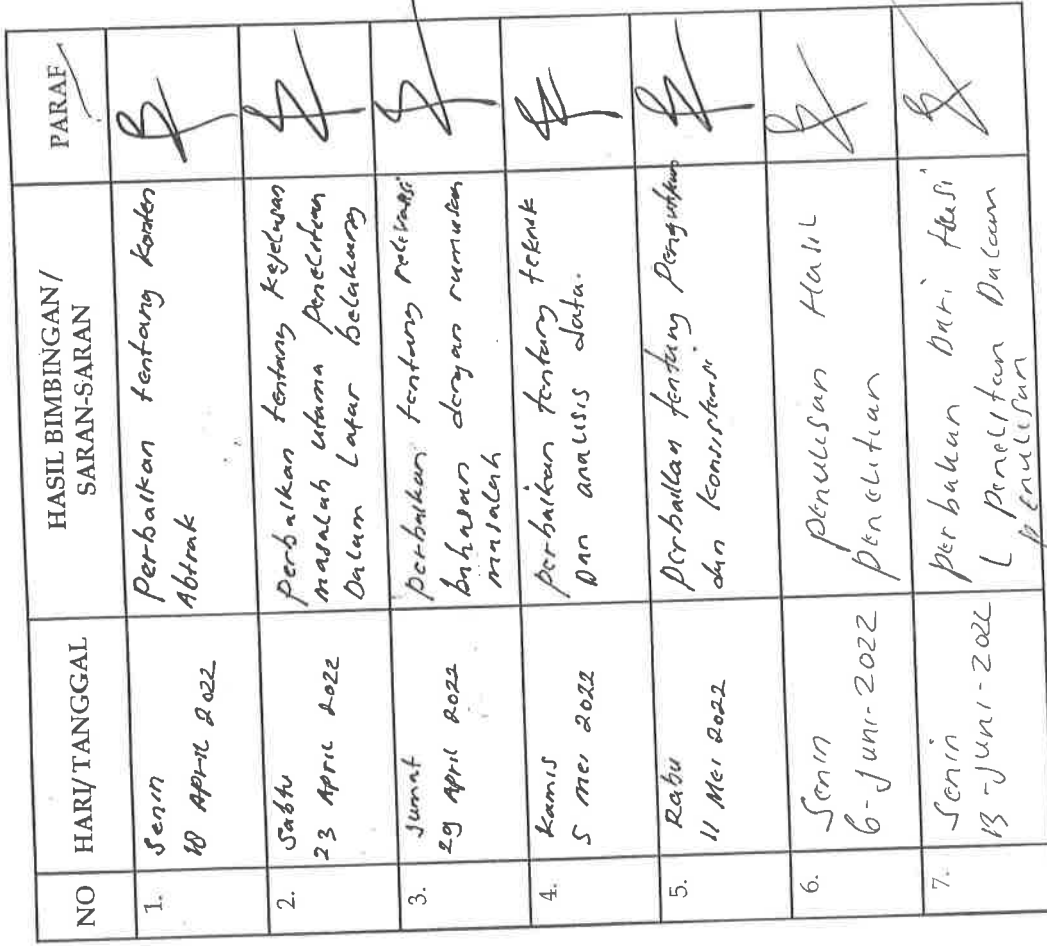 NO HARI/TANGGAL HASIL BIMBINGAN/ SARAN-SARAN PARAF
1. Senin
18 April 2022
Perbaikan tentang Konten
Abtrak
2. Sabtu
23 April 2022
Perbaikan tentang Kejelasan
masalah utama Penelitian
Dalam Latar belakang
3. Jumat
29 April 2022
Perbaikan tentang relevansi
bahasan dengan rumusan
masalah
4. Kamis
5 Mei 2022
Perbaikan tentang teknik
Dan analisis data.
5. Rabu
11 Mei 2022
Perbaikan tentang Pengutipan
dan Konsistensi
6. Senin
6-Juni-2022
Penulisan Hasil
Penelitian
7. Senin
13-Juni-2022
Perbaikan Dari Hasil
Penelitan Dalam
Penulisan